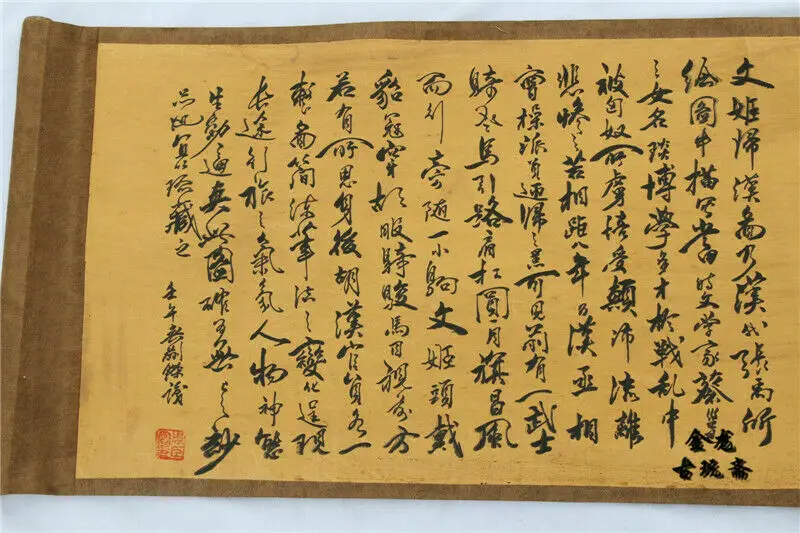 文姬歸漢圖乃漢代張瑀所
繪圖中描寫當時文學家蔡邕
之女名琰博學多才於戰亂中
被匈奴所虜受顛沛流離
悲慘之苦相距八年乃漢丞相
曹操派員迎歸之景可見前有一武士
騎老馬引路肩扛圓月旗冒風
而行旁隨一小駒文姬頭戴
貂冠穿胡服騎駿馬目視前方
若有所思身後胡漢官員各一
整圖簡練筆法之變化呈現
長途行旅之氣氛人物神態
生動逼真此圖確可無上之妙
品也宜珍藏之
壬午
金龙
古斋